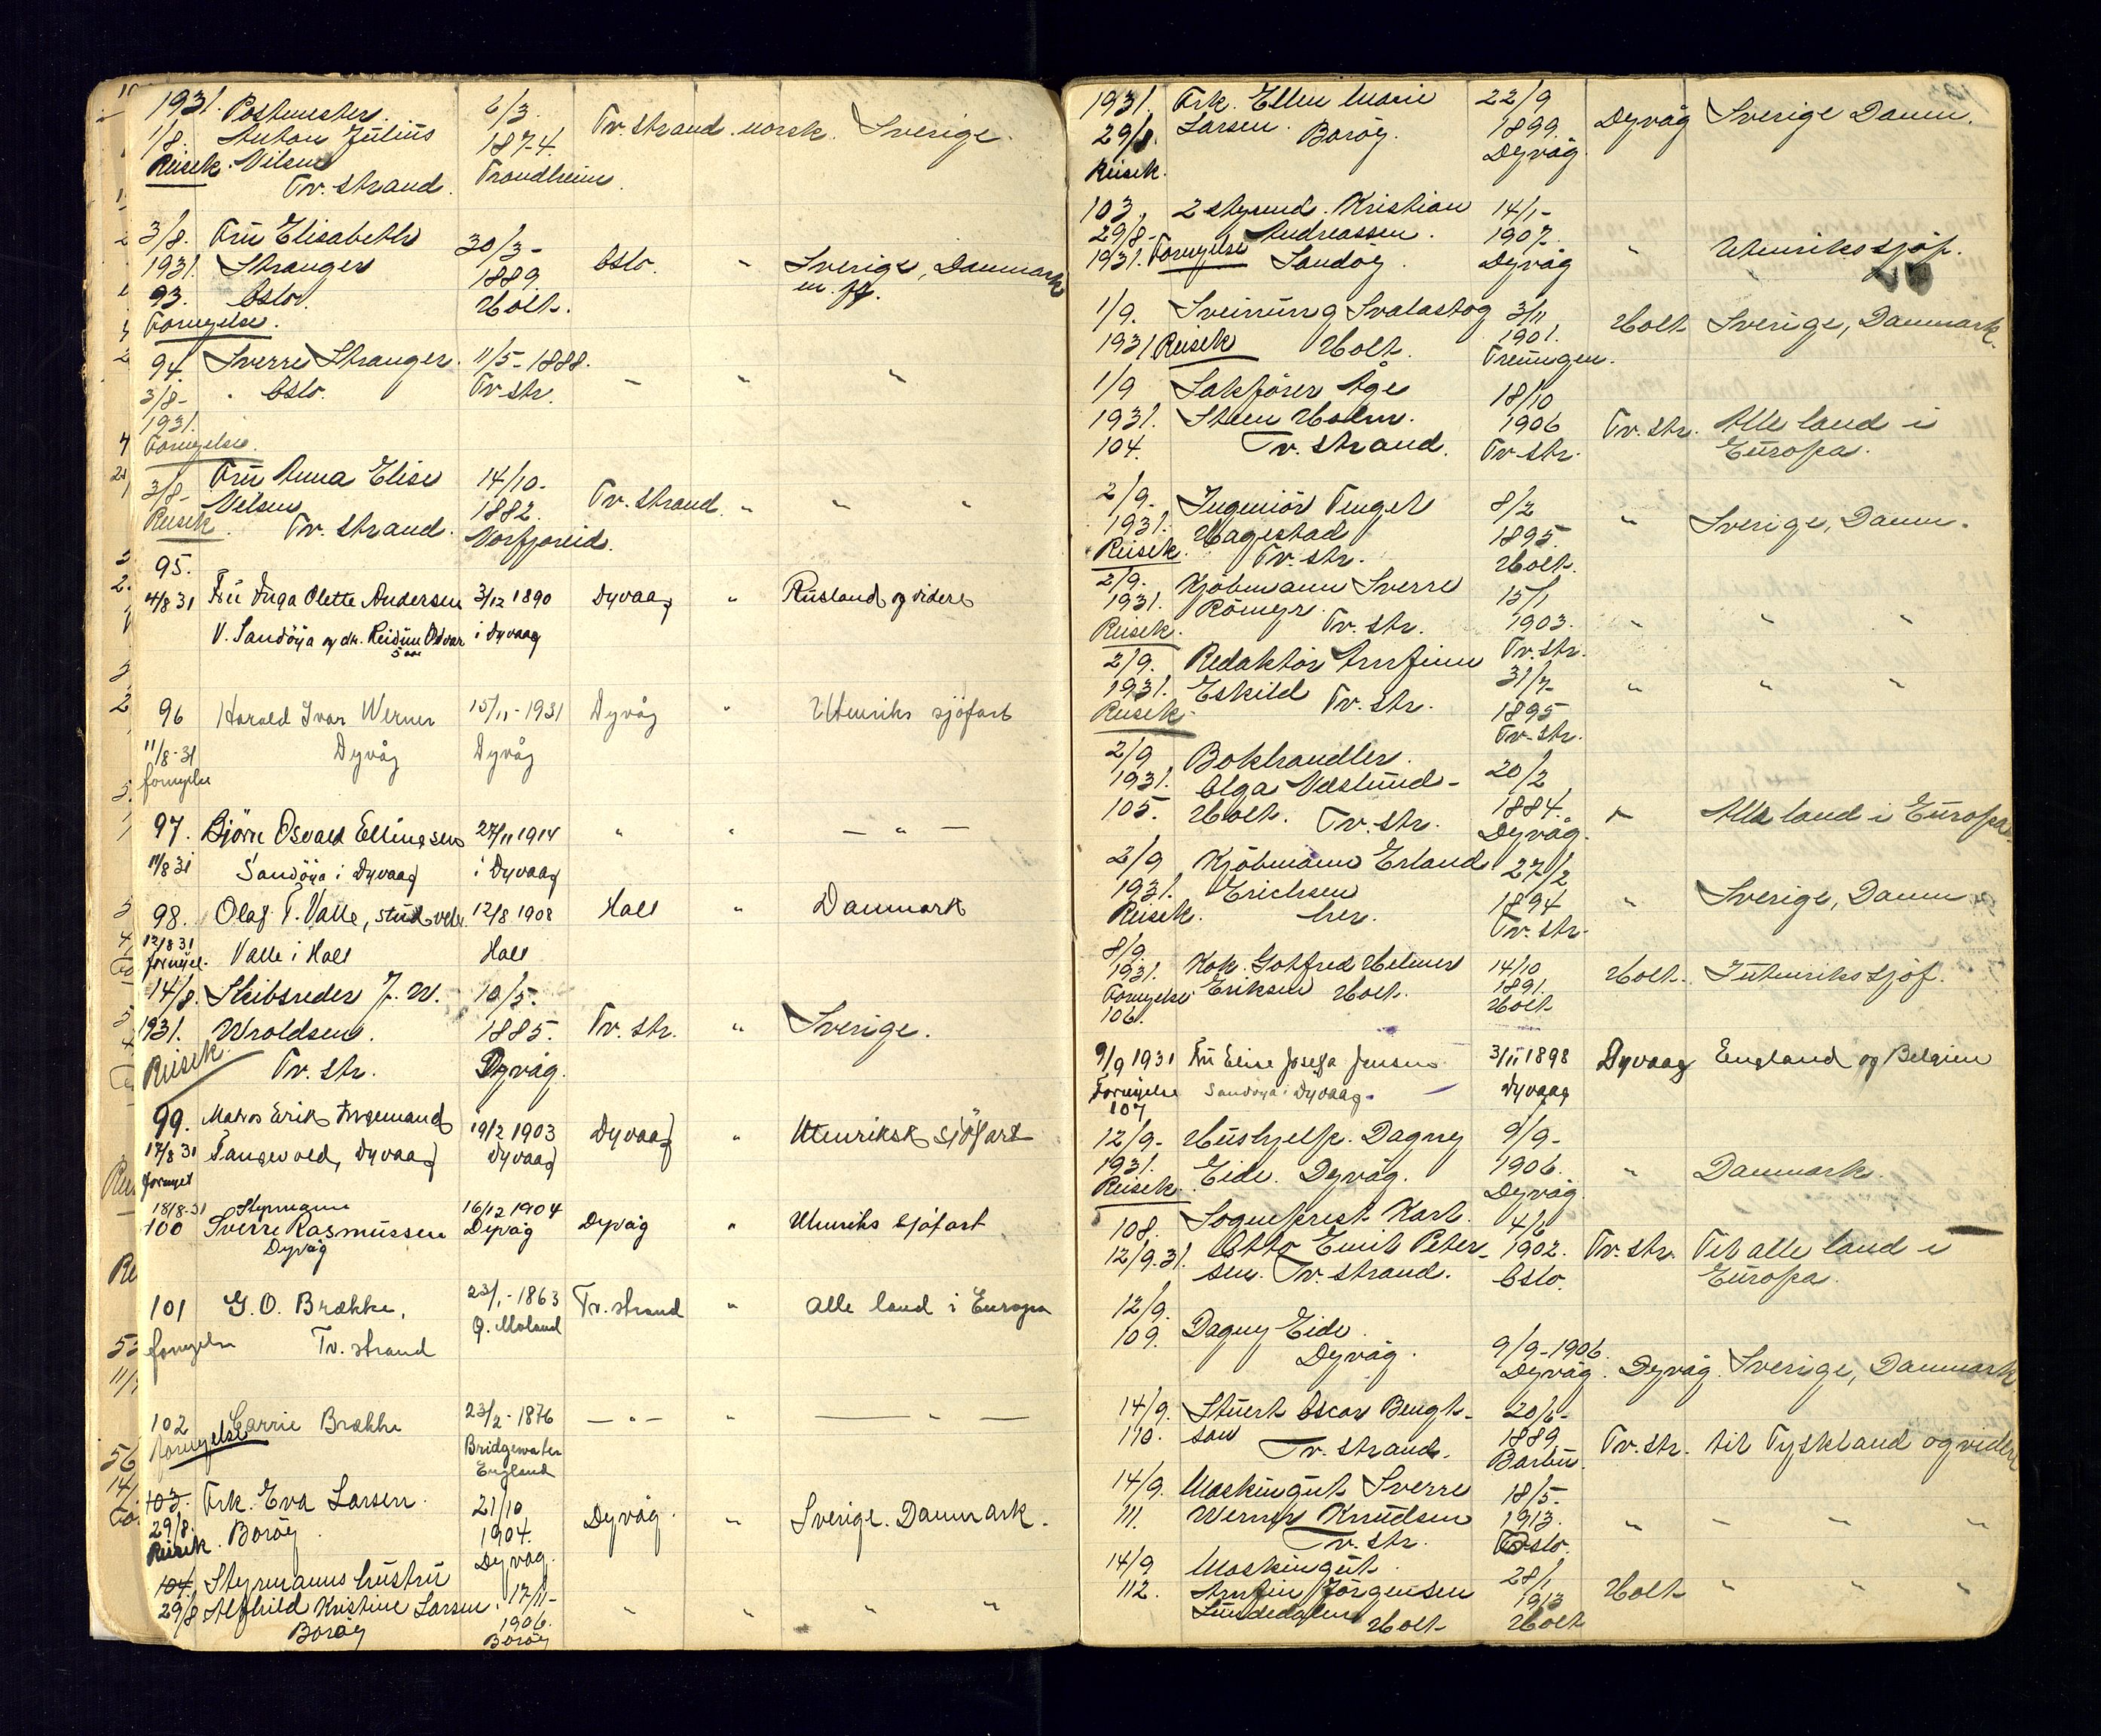 1931. Postmester 6/3.
1/8. Anton Julius 1874. Tv. strand. norsk. Sverige.
Reisek. Nilsen Trondheim.
Tv. strand.
3/8. Fru Elisabeth 30/3-
1931. Stranger 1889. Oslo. " Sverige, Danmark
93. Oslo. Holt. m. fl.
Fornyelse.
94. Sverre Stranger. 11/5-1888.
3/8- Oslo. Tv. str. - " "
1931.
Fornyelse.
3/8- Fru Anna Elise 14/10-
Nilsen 1882. Tv. strand. " " "
Reisek. Tv. strand.
95.
4/8 31 Fru Inga Olette Andersen 3/12 1890 Dyvaag " Rusland og videre
V. Sandöya og dr. Reidun Odvar i Dyvaag
5 aar
96 Harald Ivar Werner 15/11-1931 Dyvåg " Utenriks sjöfart
11/8-31 Dyvåg Dyvåg
fornyelse
97. Björn Osvald Ellingsen 27/11 1914 " " — " —
11/8 31 Sandöya i Dyvaag i Dyvaag
98. Olaf T. Valle, stud. vet. 12/8 1908 Holt " Danmark
12/8 31 Valle i Holt Holt
fornyel.
14/8. Skibsreder J. W. 10/5.
1931. Wroldsen. 1885. Tv. str. " Sverige.
Reisek. Tv. str. Dyvåg.
99. Matros Erik Ingemand 19/2 1903 Dyvaag " Utenriksk sjöfart
17/8 31 Tangevold, Dyvaag Dyvaag
fornyet
18/8-31 Styrmann 16/12 1904
100 Sverre Rasmussen Dyvåg Dyvåg " Utenriks sjöfart
Dyvåg
101 G. O. Brække, 23/1-1863 Tv. strand " alle land i Europa
fornyelse Tv. strand Ø. Moland
102 Carrie Brække 23/2-1876 — " — " — " —
fornyelse Bridgewater
England
103. Frk. Eva Larsen. 21/10
29/8. Boröy. 1904. Dyvåg. " Sverige. Danmark.
Reisek. Dyvåg.
104. Styrmanns hustru
29/8 Alfhild Kristine Larsen. 17/11- " " " "
Boröy 1906.
Boröy
1931. Frk. Ellen Marie 22/9
29/8. Larsen. Boröy. 1899. Dyvåg Sverige Danm.
Reisek. Dyvåg.
103, 2 styrmd. Kristian 14/1-
29/8- Andreassen. 1907. " Utenrikssjöf.
1931. Fornyelse Sandöy. Dyvåg
1/9. Sveinung Svalastog 3/11 Holt Sverige, Danmark.
1931 Reisek Holt. 1901.
Treungen.
1/9 Sakförer Åge 18/10
1931. Steen Holm. 1906 Tv. str. Alle land i
104. Tv. strand. Tv. str. Europa.
2/9- Ingeniör Tengel 8/2
1931. Hagestad 1895. " Sverige, Danm.
Reisek. Tv. str. Holt.
2/9. Kjöbmann Sverre 15/1
1931. Römyr. 1903. " " "
Reisek. Tv. str. Tv. str.
2/9. Redaktör Arnfinn 31/7-
1931. Eskild Tv. str. 1895 " " "
Reisek. Tv. str.
2/9 Bokhandler
1931. Olga Væslund- 20/2
105. Holt. Tv. str. 1884. " Alle land i Europa.
Dyvåg.
2/9 Kjöbmann Erland 27/2
1931. Erichsen 1894 " Sverige, Danm
Reisek. her. Tv. str.
8/9.
1931. Kok. Gotfred Helmer 14/10 Holt. Intenrikssjöf.
Fornyelse Eriksen Holt. 1891.
106. Holt
9/9 1931 Fru Elise Josefa Jensen 3/11 1898 Dyvaag England og Belgien
Fornyelse Sandöya i Dyvaag. Dyvaag
107
12/9- Hushjelp. Dagny 9/9-
1931. Eide. Dyvåg. 1906. " Danmark.
Reisek. Dyvåg.
108. Sogneprest Karl 4/6
12/9.31. Otto Emil Peter- 1902. Tv. str. Til alle land i
sen. Tv. strand. Oslo. Europa.
12/9.
109. Dagny Eide. 9/9-1906.
Dyvåg. Dyvåg. Dyvåg. Sverige, Danmark
14/9. Stuert Oscar Bengt- 20/6-
110. son 1889 Tv. str. til Tyskland og videre
Tv. strand. Barbu.
14/9. Maskingut Sverre 18/5.
111. Werner Knudsen 1913. " " " "
Tv. str. Oslo.
14/9 Maskingut. 28/1
112. Arnfin Jörgensen 1913 Holt " " "
Lundedalen Holt Holt